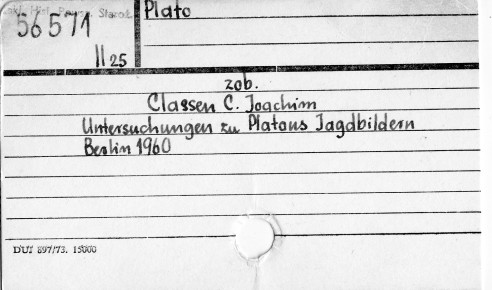 Zakł. Hist. Powsz. Staroż.
56571
II 25
Plato
zob.
Classen C. Joachim
Untersuchungen zu Platons Jagdbildern
Berlin 1960
DUJ 897/73. 15000